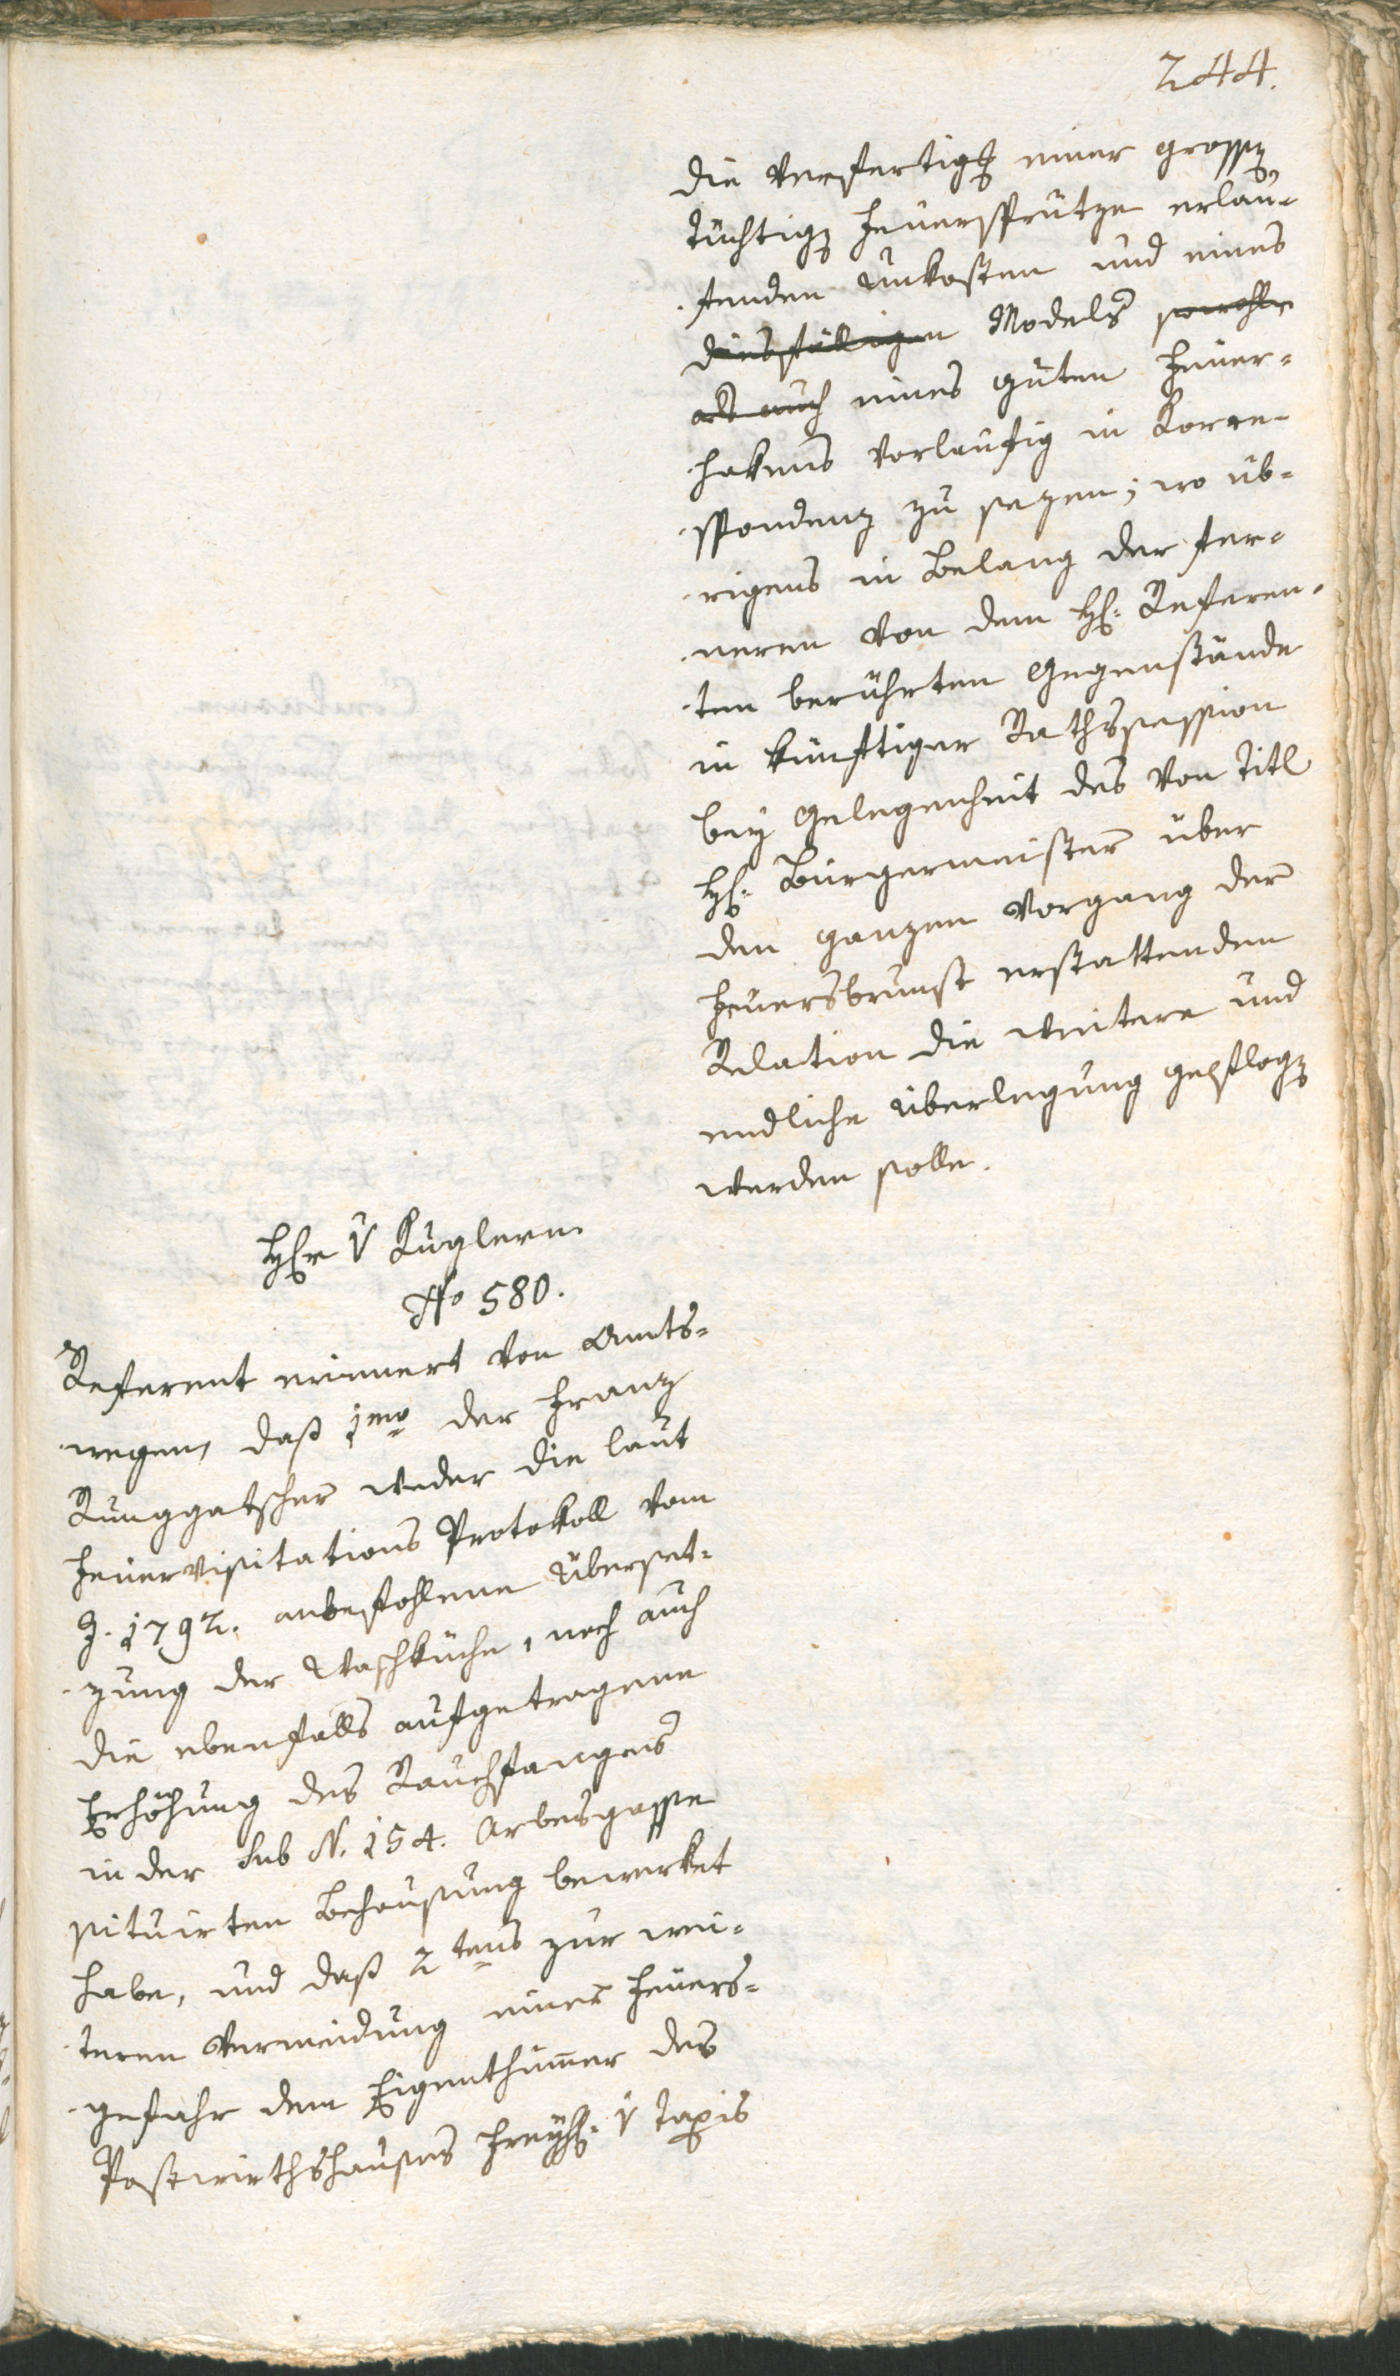 244.
die Verfertigung einer grossen
tüchtigen Feuersprütze erlau-
fenden Unkosten und eines
diesfälligen Models sowohle
als auch eines guten Feuer-
hakens vorläufig in Korre-
spondenz zu sezen; wo üb-
rigens in Belang der fer-
neren von dem H: Referen-
ten berührten Gegenstände
in künftiger Rathssession
bey Gelegenheit des von Titl
H: Bürgermeister über
den ganzen Vorgang der
Feuersbrunst erstattenden
Relation die weitere und
endliche Überlegung gepflogen
werden solle.
Herr v Kuglern
No 580.
Referent erinnert von Amts-
wegen, daß 1mo der Franz
Runggatscher weder die laut
Feuervisitations Protokoll vom
J. 1792. anbefohlene Überset-
zung der Waschküche, noch auch
die ebenfalls aufgetragene
Erhöhung des Rauchfanges
in der sub N. 154. Arbesgasse
situirten Behausung bewerket
habe, und daß 2tens zur wei-
teren Vermeidung einer Feuers-
gefahr dem Eigenthümer des
Postwirthshauses Freyh: v Taxis